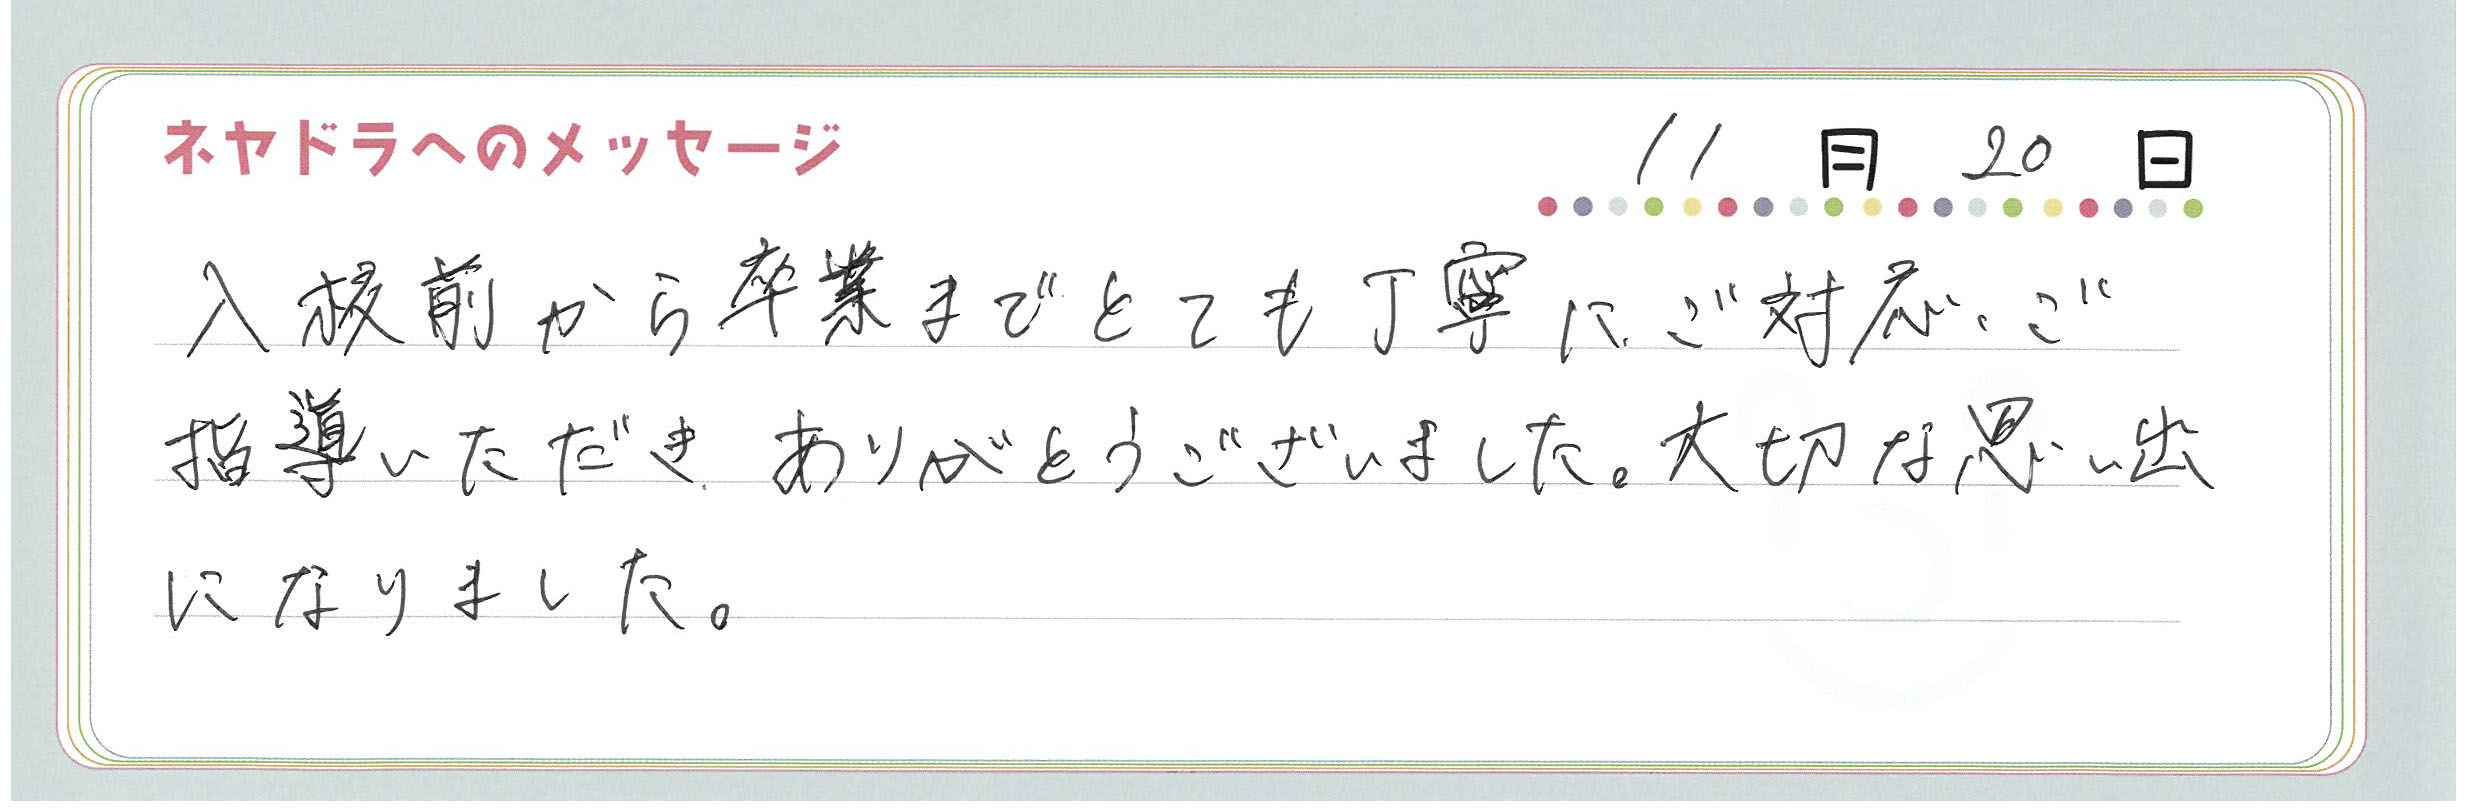 ネヤドラへのメッセージ
11月20日
入校前から卒業までとても丁寧にご対応、ご
指導いただき、ありがとうございました。大切な思い出
になりました。